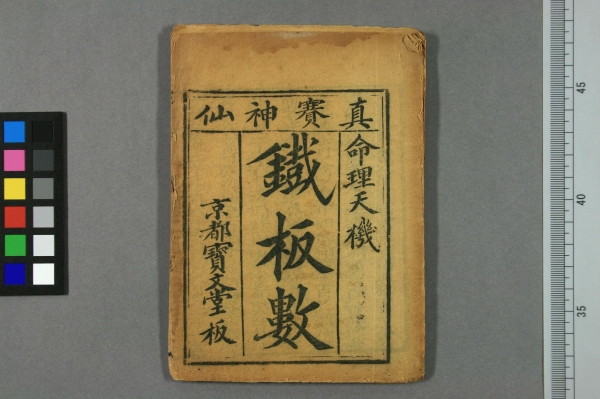 真賽神仙
命理天機
鐵板數
京都寶文堂板
45
40
35